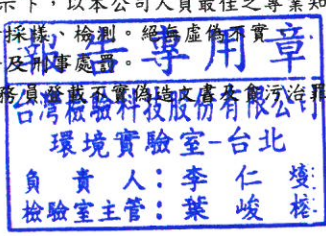 示下，以本公司人員最佳之專業知
採樣、檢測。絕無虛偽不實
及刑事處罰。
報告專用章
務員登載不實偽造文書及貪污治罪
台灣檢驗科技股份有限公司
環境實驗室-台北
負責人：李仁
檢驗室主管：葉峻榕